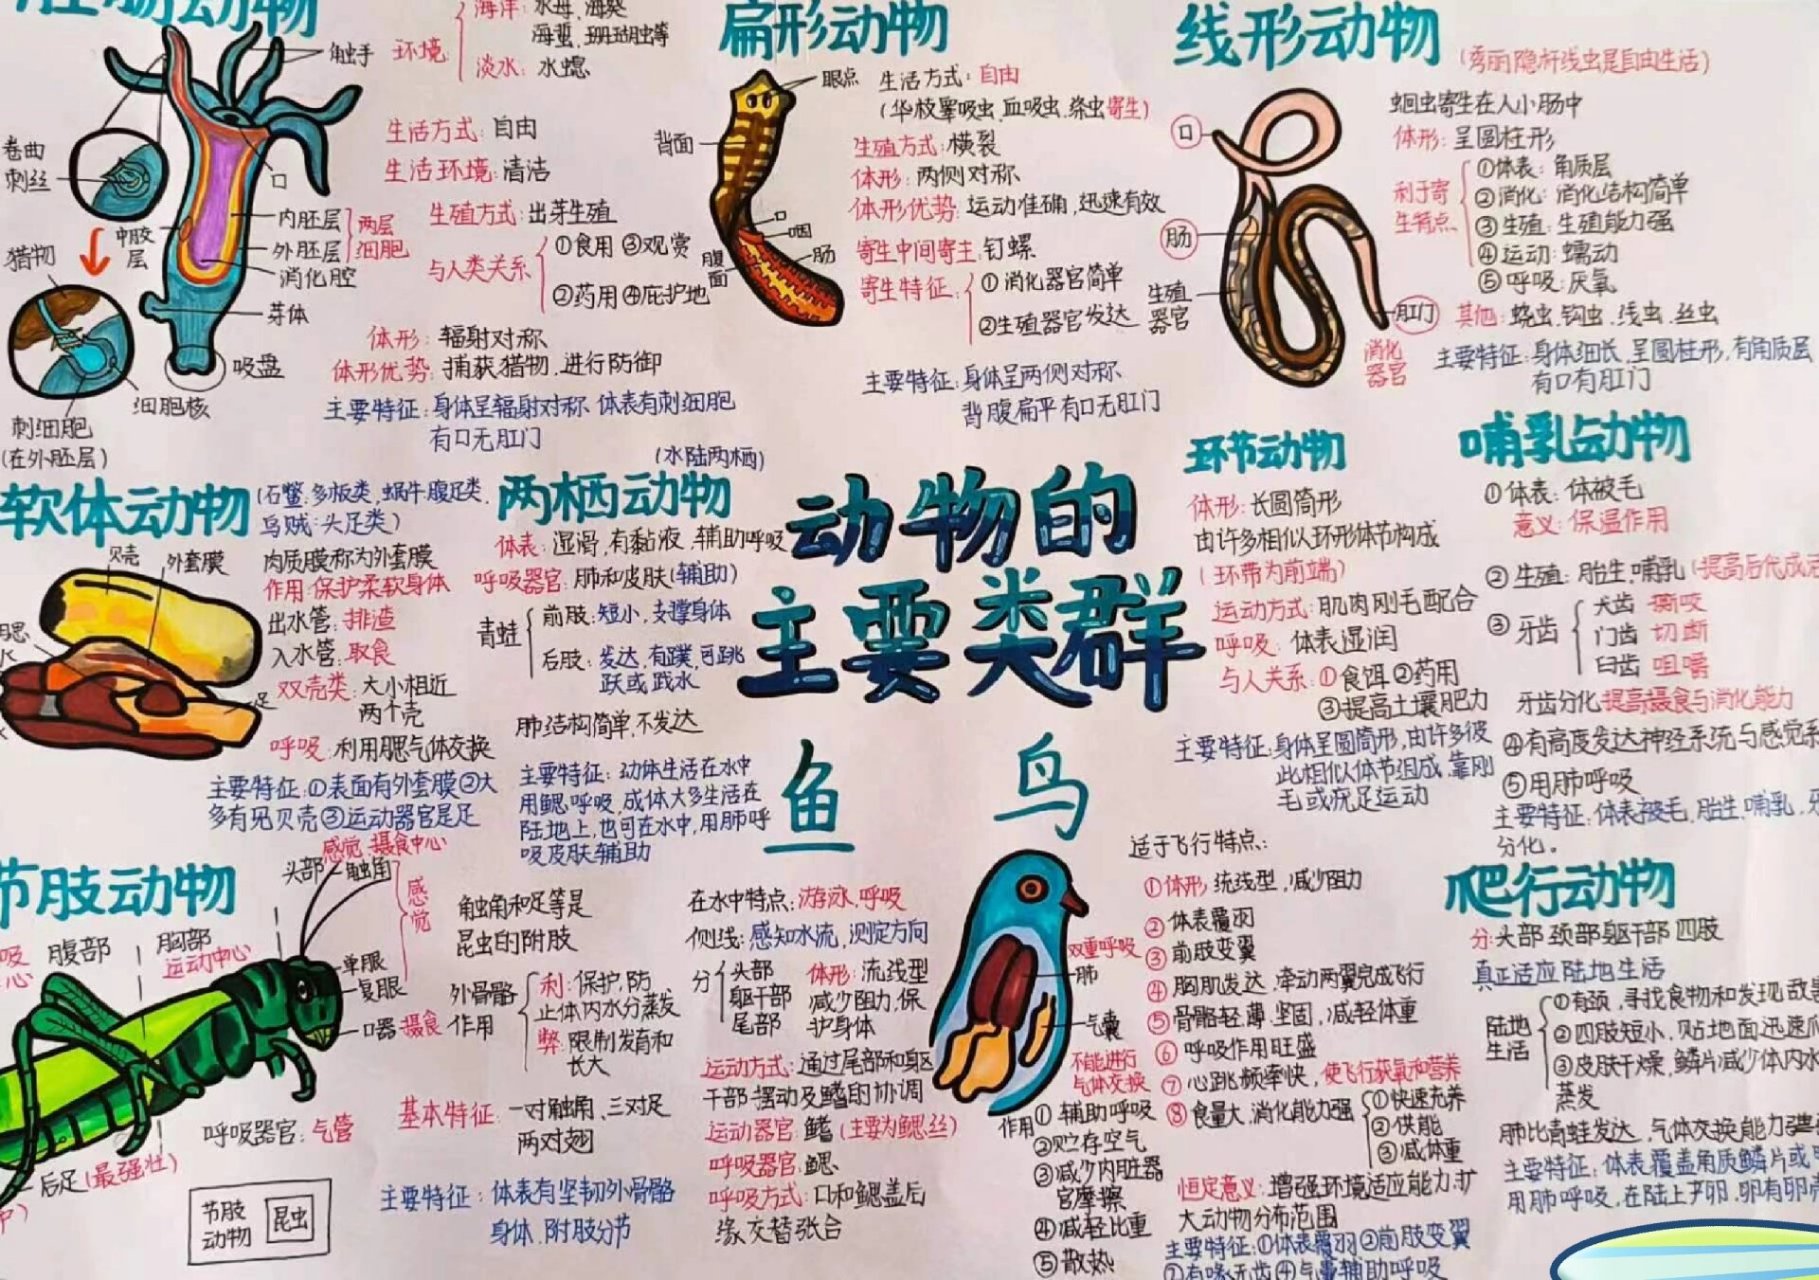 腔肠动物
触手
环境
海洋: 水母、海葵
海蜇、珊瑚虫等
淡水: 水螅
卷曲
刺丝
口
生活方式: 自由
生活环境: 清洁
内胚层
外胚层
两层
细胞
中胶
层
消化腔
猎物
芽体
吸盘
细胞核
刺细胞
(在外胚层)
生殖方式: 出芽生殖
与人类关系
①食用 ③观赏
②药用 ④庇护地
体形: 辐射对称
体形优势: 捕获猎物,进行防御
主要特征: 身体呈辐射对称 体表有刺细胞
有口无肛门
扁形动物
眼点
背面
口
咽
肠
腹
面
生活方式: 自由
(华枝睾吸虫、血吸虫、绦虫寄生)
生殖方式: 横裂
体形: 两侧对称
体形优势: 运动准确,迅速有效
寄生中间寄主: 钉螺
寄生特征:
①消化器官简单
②生殖器官发达
主要特征: 身体呈两侧对称
背腹扁平有口无肛门
线形动物
(秀丽隐杆线虫是自由生活)
口
肠
生殖
器官
肛门
消化
器官
蛔虫寄生在人小肠中
体形: 呈圆柱形
利于寄
生特点
①体表: 角质层
②消化: 消化结构简单
③生殖: 生殖能力强
④运动: 蠕动
⑤呼吸: 厌氧
其他: 蛲虫、钩虫、线虫、丝虫
主要特征: 身体细长,呈圆柱形,有角质层
有口有肛门
软体动物
(石鳖:多板类,蜗牛:腹足类,
乌贼:头足类)
贝壳
外套膜
足
肉质膜称为外套膜
作用:保护柔软身体
出水管: 排渣
入水管: 取食
双壳类: 大小相近
两个壳
呼吸: 利用腮气体交换
主要特征: ①表面有外套膜②大
多有贝壳③运动器官是足
两栖动物
(水陆两栖)
体表: 湿滑,有黏液,辅助呼吸
呼吸器官: 肺和皮肤(辅助)
青蛙
前肢: 短小,支撑身体
后肢: 发达,有蹼,可跳
跃或践水
肺结构简单,不发达
主要特征: 幼体生活在水中
用鳃呼吸,成体大多生活在
陆地上,也可在水中,用肺呼
吸皮肤辅助
动物的
主要类群
环节动物
体形: 长圆筒形
由许多相似环形体节构成
(环带为前端)
运动方式: 肌肉刚毛配合
呼吸: 体表湿润
与人关系: ①食饵 ②药用
③提高土壤肥力
主要特征: 身体呈圆筒形,由许多彼
此相似体节组成,靠刚
毛或疣足运动
哺乳动物
①体表: 体被毛
意义: 保温作用
②生殖: 胎生,哺乳(提高后代成活
③牙齿
犬齿 撕咬
门齿 切断
臼齿 咀嚼
牙齿分化提高摄食与消化能力
④有高度发达神经系统与感觉系
⑤用肺呼吸
主要特征: 体表被毛,胎生,哺乳,牙
分化。
节肢动物
感觉 摄食中心
头部
触角
感
觉
腹部
胸部
运动中心
单眼
复眼
口器 摄食
呼吸器官: 气管
后足(最强壮)
节肢
动物
昆虫
触角和足等是
昆虫的附肢
外骨骼
作用
利: 保护,防
止体内水分蒸发
弊: 限制发育和
长大
基本特征: 一对触角、三对足
两对翅
主要特征: 体表有坚韧外骨骼
身体、附肢分节
鱼
在水中特点: 游泳、呼吸
侧线: 感知水流,测定方向
分
头部
躯干部
尾部
体形: 流线型
减少阻力,保
护身体
运动方式: 通过尾部和躯
干部摆动及鳍的协调
运动器官: 鳍(主要为鳃丝)
呼吸器官: 鳃
呼吸方式: 口和鳃盖后
缘交替张合
鸟
双重呼吸
肺
气囊
不能进行
气体交换
作用
①辅助呼吸
②贮存空气
③减少内脏器
官摩擦
④减轻比重
⑤散热
适于飞行特点:
①体形 流线型,减少阻力
②体表覆羽
③前肢变翼
④胸肌发达,牵动两翼完成飞行
⑤骨骼轻、薄、坚固,减轻体重
⑥呼吸作用旺盛
⑦心跳频率快,使飞行获氧和营养
⑧食量大,消化能力强
①快速充养
②供能
③减体重
恒定意义: 增强环境适应能力,扩
大动物分布范围
主要特征:①体表覆羽②前肢变翼
③有喙无齿④气囊辅助呼吸
爬行动物
分: 头部 颈部 躯干部 四肢
真正适应陆地生活
陆地
生活
①有颈,寻找食物和发现敌害
②四肢短小,贴地面迅速爬
③皮肤干燥,鳞片减少体内水
蒸发
肺比青蛙发达,气体交换能力强
主要特征: 体表覆盖角质鳞片或
用肺呼吸,在陆上产卵,卵有卵壳